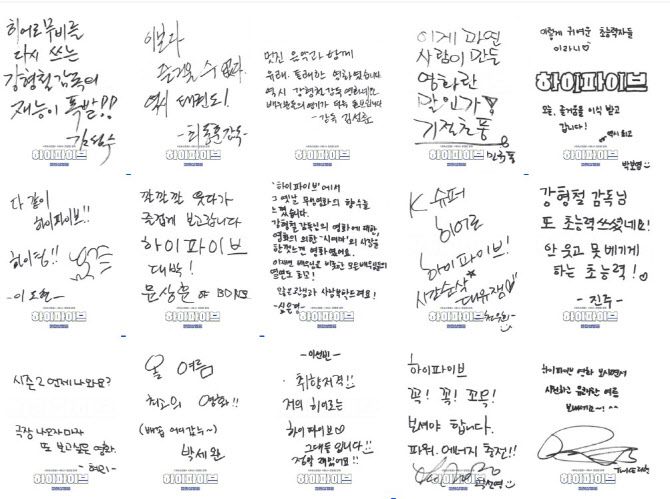 히어로무비를
다시 쓰는
강형철 감독의
재능이 폭발!!
하이파이브
이보다
즐거울 수 없다.
역시 태편도!
-최동훈감독-
하이파이브
멋진 음악과 함께
유쾌, 통쾌한 영화였습니다
역시 강형철감독 영화네요
-감독 김선훈
하이파이브
이게 과연
사람이 만든
영화란
말인가!
기절초풍
하이파이브
이렇게 귀여운 초능력자들
이라니♡
하이파이브
모두, 즐거움을 이식 받고
갑니다!
역시 최고
박보영
다 같이
하이파이브!!
하이텐!!
-이도현-
하이파이브
깔깔깔 웃다가
즐겁게 보고갑니다
하이파이브
대박!
문상훈 of BDNS
하이파이브
'하이파이브'에서
그 옛날 무성영화의 향수를
느꼈습니다.
강형철 감독님의 영화에 대한,
영화의 의한 '시네마'의 시작을
한껏느낀 영화였어요.
-심은경-
하이파이브
K 슈퍼
히어로
하이파이브!
시간순삭★
대유잼♡
하이파이브
강형철 감독님
또 초능력 쓰셨네요!
안 웃고 못 베기게
하는 초능력!
-진주-
하이파이브
시즌2 언제 나와요?
극장 나오자마자
또 보고싶은 영화.
-혜리-
하이파이브
올 여름
최고의 영화!!
박세완
하이파이브
-이선빈-
취향저격!!
저의 히어로는
하이파이브♡
그대들 입니다!!
정말 재밌어요!!
하이파이브
하이파이브
꼭! 꼭! 꼬옥!
보셔야 합니다.
파워. 에너지 충전!!
하이파이브
하이파이브 영화 보시면서
시원하고 유쾌한 여름
보내세요~! ^^
하이파이브